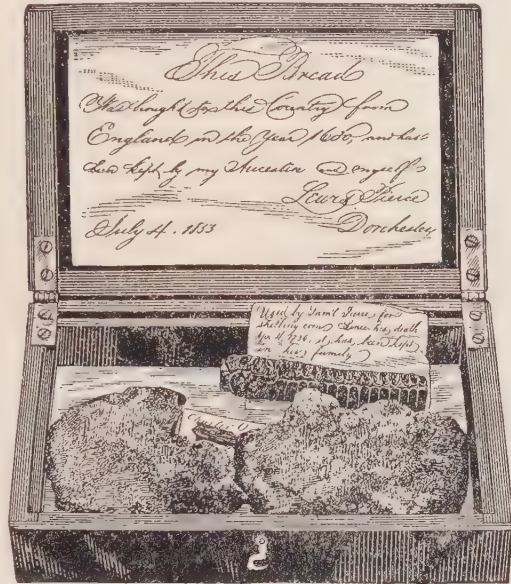 This Bread
Was brought to this Country from
England in the Year 1630, and has
been kept by my Ancestin and myself
Lewis Pierce
July 4. 1853 Dorchester
Used by Sam'l Pierce for
shelling corn Since his death
4, 1736, it has been kept
in his family